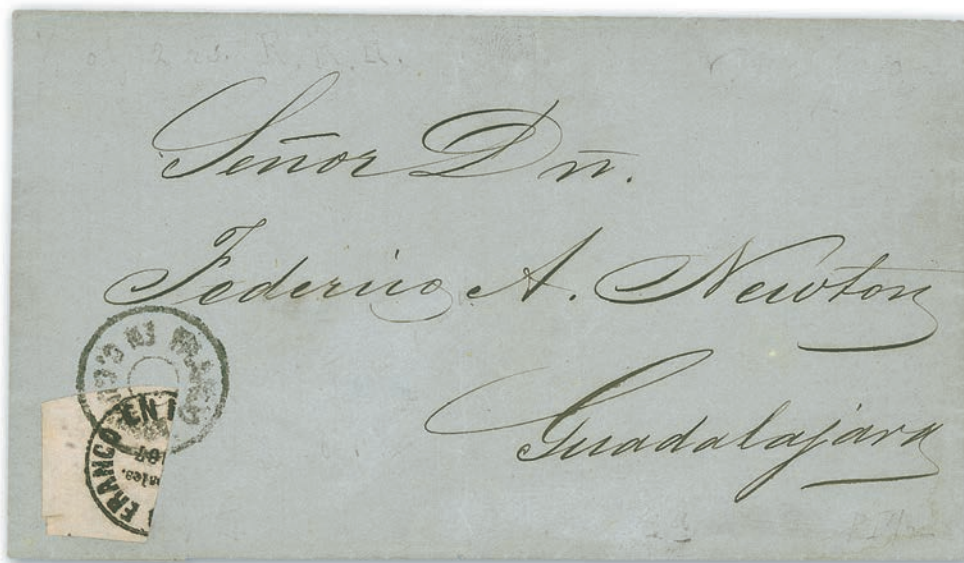 2 rs.
Señor Dn.
Federico A. Newton
Guadalajara
FRANCO EN
67
ales.